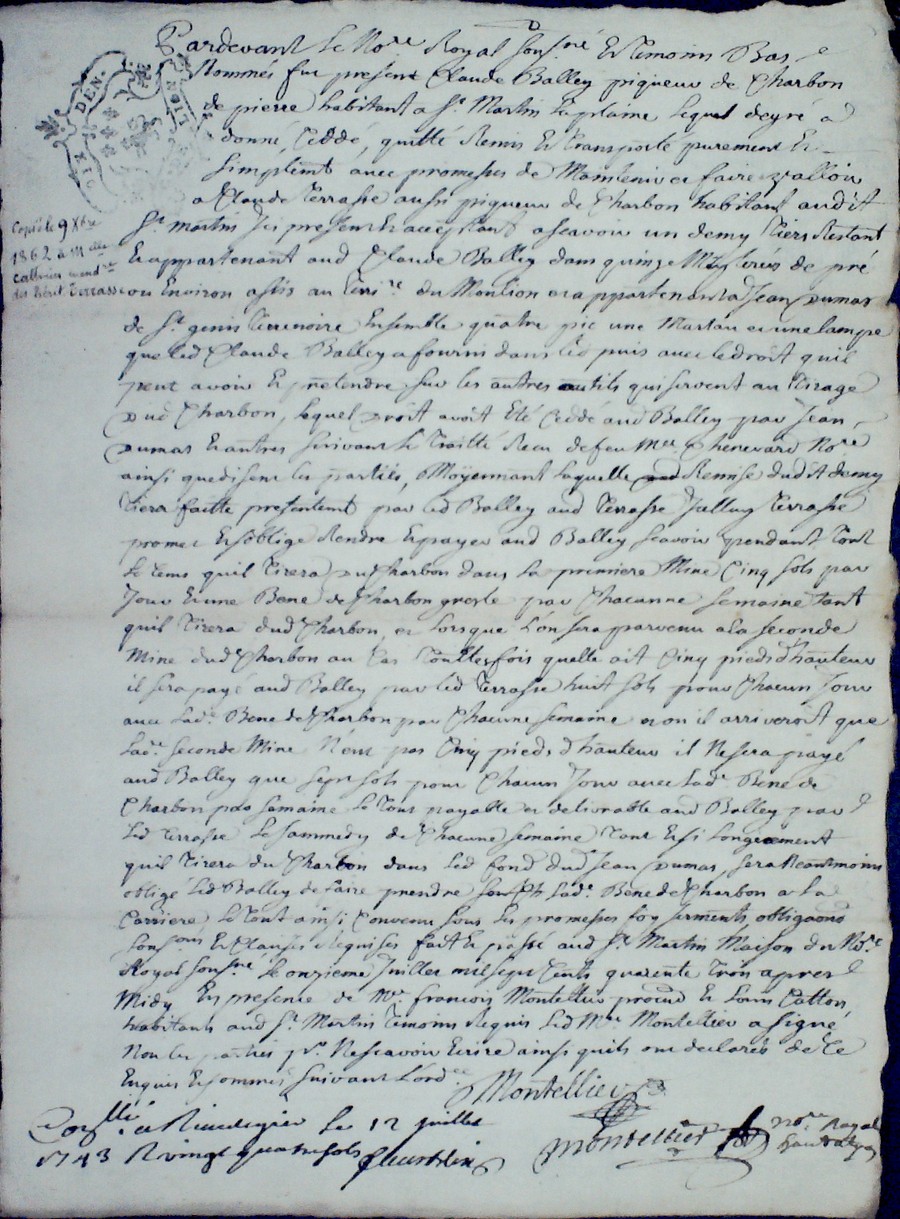 Pardevant le No.re Royal sousné et temoins Bas
Nommés fut present Claude Balley piqueur de Charbon
de pierre habitant a St. Martin laplaine lequel de gré a
donné, ceddé, quitté Remis et transporté purement et
simplemt avec promesses de Maintenir et faire valloir
a Claude Terrasse aussi piqueur de Charbon habitant audit
St. martin ici present et acceptant ascavoir un demy tiers Restant
et appartenant aud Claude Balley dans quinze de pré
ou Environ assis au Terr.re du Montion et appartenant a Jean Dumas
de St. genis terrenoire Ensemble quatre pic une Martau et une lampe
que led Claude Balley a fourni dans led puis avec le droit quil
peut avoir et pretendre sur les autres outils qui servent au tirage
dud Charbon, lequel Droit avoit Eté Ceddé aud Balley par Jean
Dumas et autres suivant le traitté Recu de feu Me. Chenevard No.re
ainsi que disent les parties, Moyennant laquelle Remise dudit demy
tiers faitte presentemt par led Balley aud Terrasse Jcelluy Terrasse
promet et s'oblige Rendre et payer aud Balley scavoir pendant tout
le tems quil tirera du Charbon dans la premiere Mine Cinq sols par
Jour et une Bene de Charbon gresle par Chacunne semaine tant
quil tirera dud Charbon, et lorsque l'on sera parvenu a la seconde
Mine dud Charbon au Cas touttesfois quelle ait Cinq pieds d'hauteur
il sera payé aud Balley par led Terrasse huit sols pour Chacun Jour
avec lad.e Bene de Charbon par Chacune semaine et ou il arriveroit que
lad.e seconde Mine N'eut pas Cinq pieds d'hauteur il Ne sera payé
aud Balley que sept sols pour Chacun Jour avec lad. Bene de
Charbon par semaine le tout payable et delivrable aud Balley par
led Terrasse le sammedy de Chacune semaine tant et si longuement
quil tirera du Charbon dans led fond dud Jean Dumas, sera Neantmoins
obligé led Balley de faire prendre lad.e Bene de Charbon a la
Carriere, le tout ainsi Convenu sous les promesses foy serments, obligaons
et Clauses Requises fait et passé aud St. Martin Maison du No.re
Royal sousné le onzieme Juillet mil sept Cents quarente trois apres
Midy En presence de Me. francois Montellier procud et Louis Catton
habitants aud St. Martin temoins Requis led Me. Montellier a signé
Non les parties pr. Ne scavoir Ecrire ainsi quils ont declarés de ce
Enquis et sommés suivant l'ord.ce
Montellier
Conllé a Rivedegier le 12 juillet
1743 R vingt quatre sols
Montellier No.re Royal
Copié le 9 Xbre
1862 à Melle
Catherine
des hérit. Terrasse